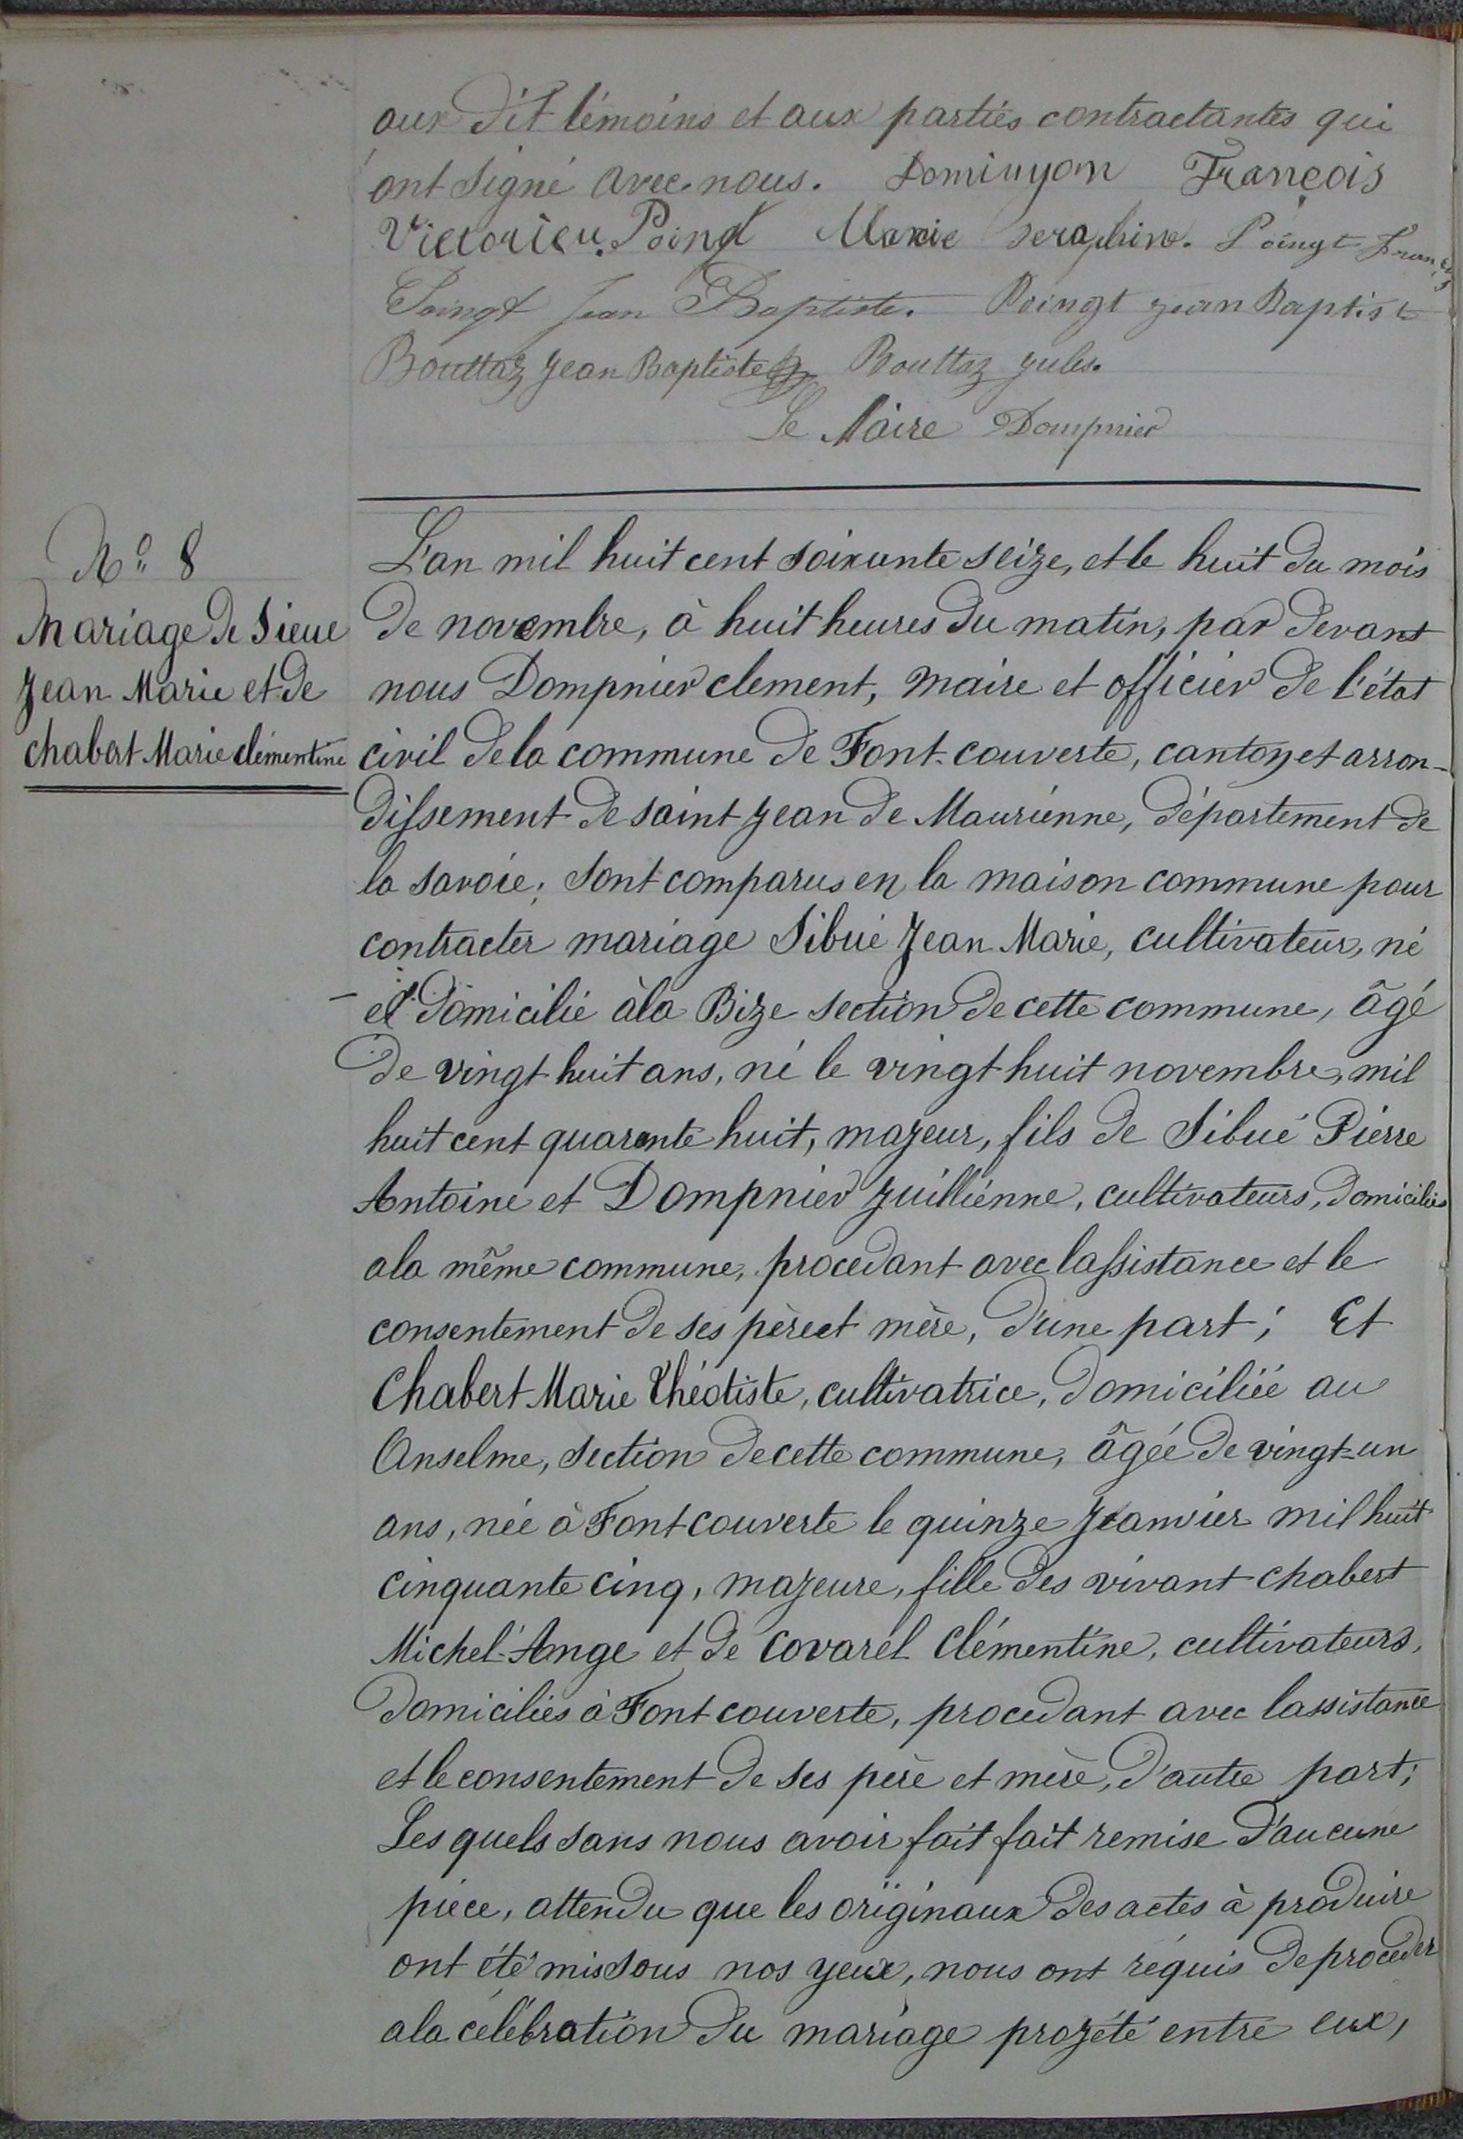 aux dit témoins et aux partiés contractantes qui
ont signé avec nous. Dominyon François
Victorien. Poingt Marie seraphine. Poingt François
Poingt Jean Baptiste. Poingt jean Baptiste
Bouttaz Jean Baptiste Bouttaz jules.
Le Maire Dompnier
N° 8
Mariage de Sieue
Jean Marie et de
chabert Marie clémentine
L'an mil huit cent soixante seize, et le huit du mois
de novembre, à huit heures du matin, par devant
nous Dompnier clement, maire et officier de l'état
civil de la commune de Font-couverte, canton et arron-
dissement de saint jean de Maurienne, département de
la savoie; sont comparus en la maison commune pour
contracter mariage Sibué Jean Marie, cultivateur, né
et domicilié à la Bize section de cette commune, âgé
de vingt huit ans, né le vingt huit novembre, mil
huit cent quarante huit, majeur, fils de Sibué Pierre
Antoine et Dompnier juillienne, cultivateurs, domiciliés
a la même commune, procedant avec lassistance et le
consentement de ses père et mère, d'une part; Et
Chabert Marie Théotiste, cultivatrice, domiciliée au
Anselme, section de cette commune, âgée de vingt-un
ans, née à Font couverte le quinze Jeanvier mil huit
cinquante cinq, majeure, fille des vivant chabert
Michel-Ange et de Covarel Clémentine, cultivateurs,
domiciliés à Font couverte, procedant avec lassistance
et le consentement de ses père et mère, d'autre part;
Les quels sans nous avoir fait fait remise d'aucune
pièce, attendu que les originaux des actes à produire
ont été mis sous nos yeux, nous ont réquis de proceder
a la célébration du mariage projété entre eux,